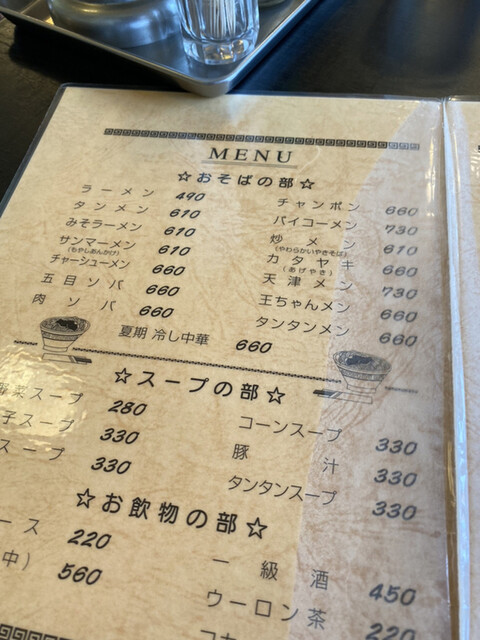 MENU
☆おそばの部☆
ラーメン 490
タンメン 610
みそラーメン 610
サンマーメン 610
(もやしあんかけ)
チャーシューメン 660
五目ソバ 660
肉ソバ 660
チャンポン 660
パイコーメン 730
炒メン 610
(やわらかいやきそば)
カタヤキ 660
(あげやき)
天津メン 730
王ちゃんメン 660
タンタンメン 660
夏期 冷し中華 660
☆スープの部☆
菜スープ 280
子スープ 330
スープ 330
コーンスープ 330
豚汁 330
タンタンスープ 330
☆お飲物の部☆
ース 220
中) 560
一級酒 450
ウーロン茶 220